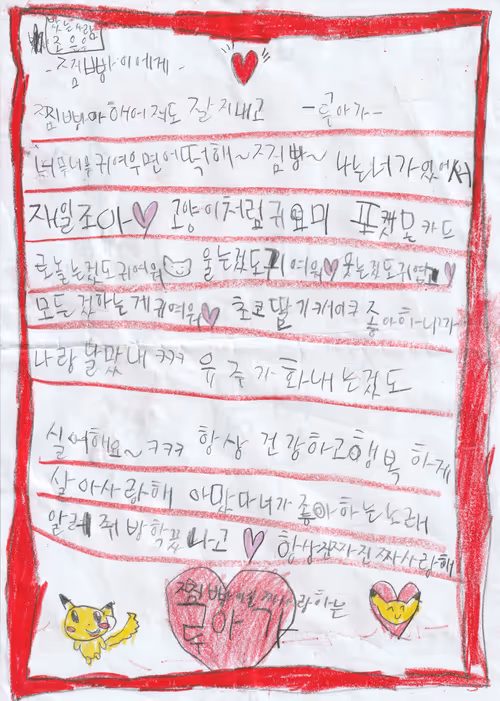 -찜빵이에게-
찜빵아 새해에도 잘 지내고 -로아가-
너무너무 귀여우면 어떡해~찜빵~ 나는 너가 있어서
재일조아 고양이처럼 귀요미 포캣몬카드
로 놀는것도 귀여워 울는것도귀여워 웃는것도귀여워
모든것 하는게 귀여워 초코 딸기 케이크 좋아하니까
나랑 날맞내 ㅋㅋㅋ 유주가 화내는것도
실어해요~ㅋㅋㅋ 항상 건강하고행복 하게
살아사랑해 아맞다 너가 좋아하는노래
알려줘 방학끝나고 항상찐짜진짜사랑해
찜빵이를 사랑하는
로아가